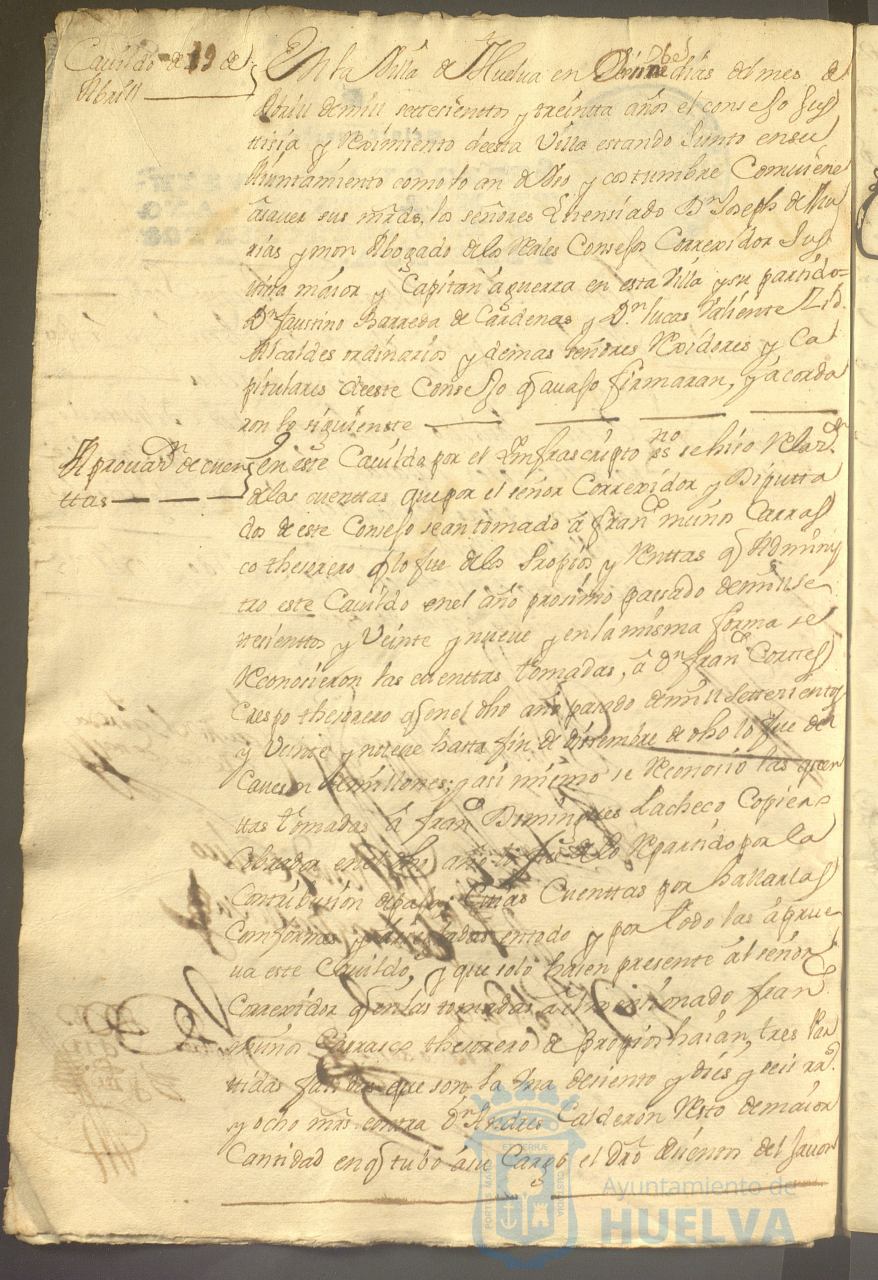 Cavildo de 19 de
Abrill
En la Villa de Huelva en dias del mes de
Abrill de mill settecienttos y treintta años el consejo Jus
tisia y Reximiento deesta Villa estando Junto en su
Aiuntamiento como lo an de Uso y costumbre Combiene
asaver sus mrds. los señores Lisensiado Dn Joseph de
rias y mon Abogado de los Reales Consejos Correxidor Jus
titia maior y Capitan aguerra en esta Villa y su partido=
Dn faustino Barreda de Cardenas y Dn lucas Valiente
Alcaldes ordinarios y demas señores Rexidores y Ca
pitulares deeste Consejo q avajo firmaran, y acorda
ron lo siguiente
Aprovazn de cuen
ttas
en este Cavildo por el Ynfrascripto es no se hiso Relazn
de las cuenttas que por el señor Correxidor y Diputta
dos de este Consejo sean tomado â franco muños Carras
co thesorero q lo fue de los Propios y Renttas q Adminis
tro este Cavildo en el año proximo passado de mill se
ttesienttos y Veinte y nueve y en la misma forma se
Reconosieron las cuenttas tomadas, â Dn franco Corttes
Crespo thesorero q en el dho año pasado de mill Settesientos
y Veinte y nueve hasta fin de disiembre de dho lo fue de
Cavesn de millones; y asi mismo se Reconosio las quen
ttas tomadas â franco Domingues Pacheco Copiero
Cobrador en el dho año de lo Repartido por la
Contribusion de Cuias Cuenttas por hallarlas
Conformes en todo y por todo las aprue
va este Cavildo, y que solo hasen presente al señor
Correxidor q en las tomadas al mensionado franco
muños Carrasco thesorero de propios hasian tres Par
tidas que son la Una de siento y dies y seis rrs.
y ocho mrs. contra Dn Andres Calderon Resto de maior
Canttidad en q tubo âsu Cargo el Dro del savon
Ayuntamiento de
HUELVA